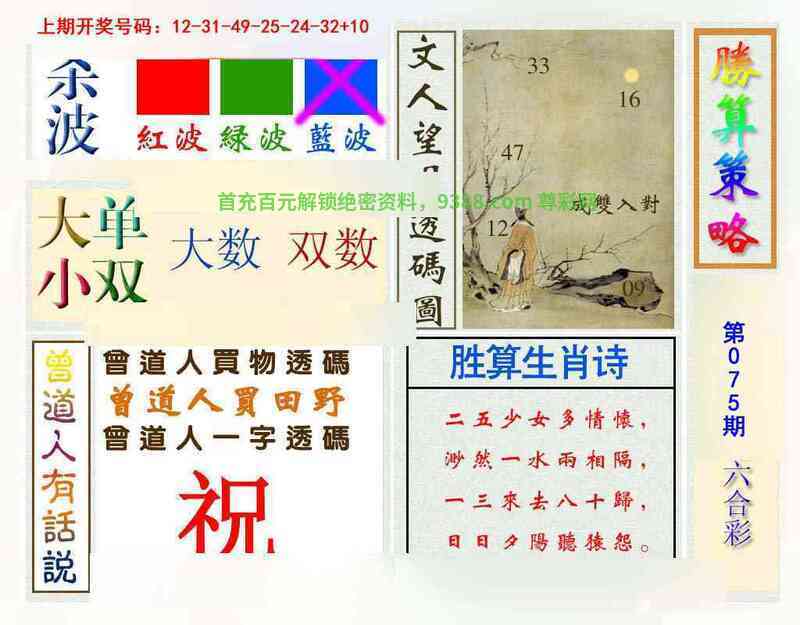 上期开奖号码：12-31-49-25-24-32+10
杀波
紅波 緑波 藍波
大单
小双
大数 双数
首充百元解锁绝密资料，9388.com 尊彩网
文人望
透碼圖
33
16
47
成雙入對
12
09
勝算策略
第075期 六合彩
曾道人有話説
曾道人買物透碼
曾道人買田野
曾道人一字透碼
祝
胜算生肖诗
二五少女多情懷，
渺然一水兩相隔，
一三來去八十歸，
日日夕陽聽猿怨。